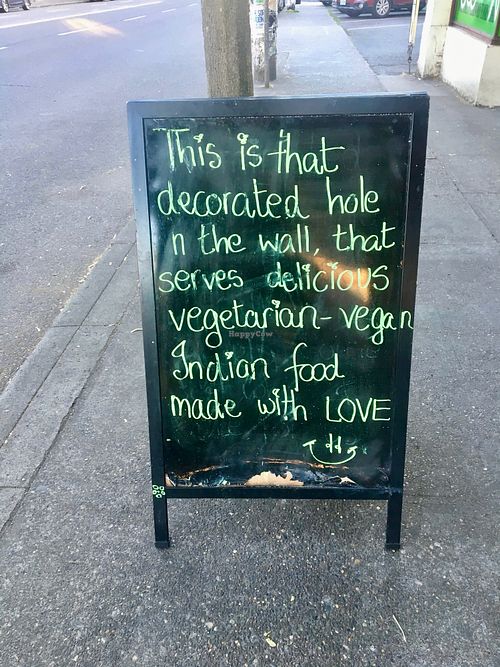 This is that
decorated hole
n the wall, that
serves delicious
vegetarian-vegan
HappyCow
Indian food
made with LOVE